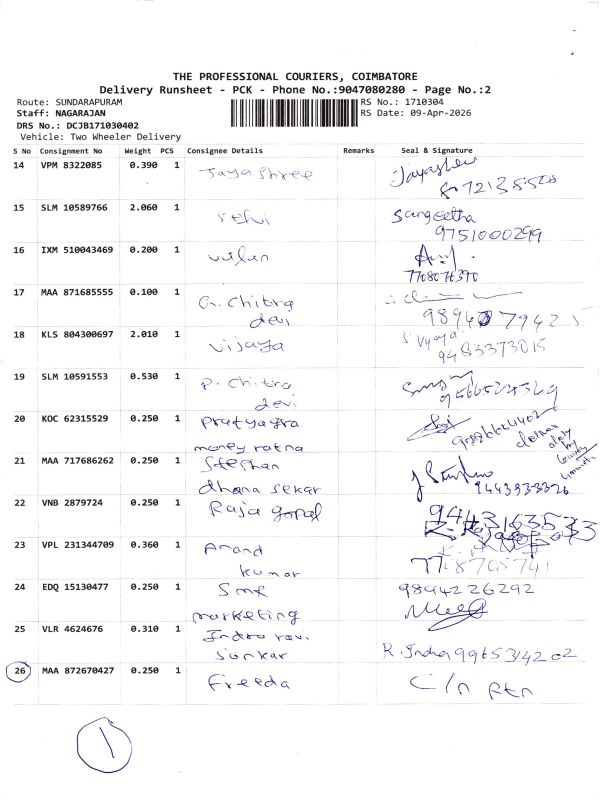 THE PROFESSIONAL COURIERS, COIMBATORE
Delivery Runsheet - PCK - Phone No.:9047080280 - Page No.:2
Route: SUNDARAPURAM RS No.: 1710304
Staff: NAGARAJAN RS Date: 09-Apr-2026
DRS No.: DCJB171030402
Vehicle: Two Wheeler Delivery
S No Consignment No Weight PCS Consignee Details Remarks Seal & Signature
14 VPM 8322085 0.390 1 Jayashree
15 SLM 10589766 2.060 1 Selvi Sangeetha
9751000299
16 IXM 510043469 0.200 1
7708076370
17 MAA 871685555 0.100 1 G. Chitra
devi
18 KLS 804300697 2.010 1 Vijaya
9483373015
19 SLM 10591553 0.530 1 P. Chitra
devi
20 KOC 62315529 0.250 1 Pratyagra
money ratna
21 MAA 717686262 0.250 1 Stephan
dhana sekar 9443333326
22 VNB 2879724 0.250 1 Raja gopal
23 VPL 231344709 0.360 1 Anand
kumar 7708705741
24 EDQ 15130477 0.250 1 9894226292
marketing
25 VLR 4624676 0.310 1 Indra ravi
Sankar R. Indra 9965314202
26 MAA 872670427 0.250 1 Freeda C/n Rtn
1